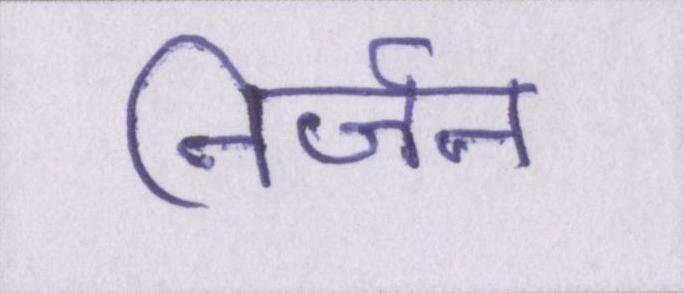 निर्जन